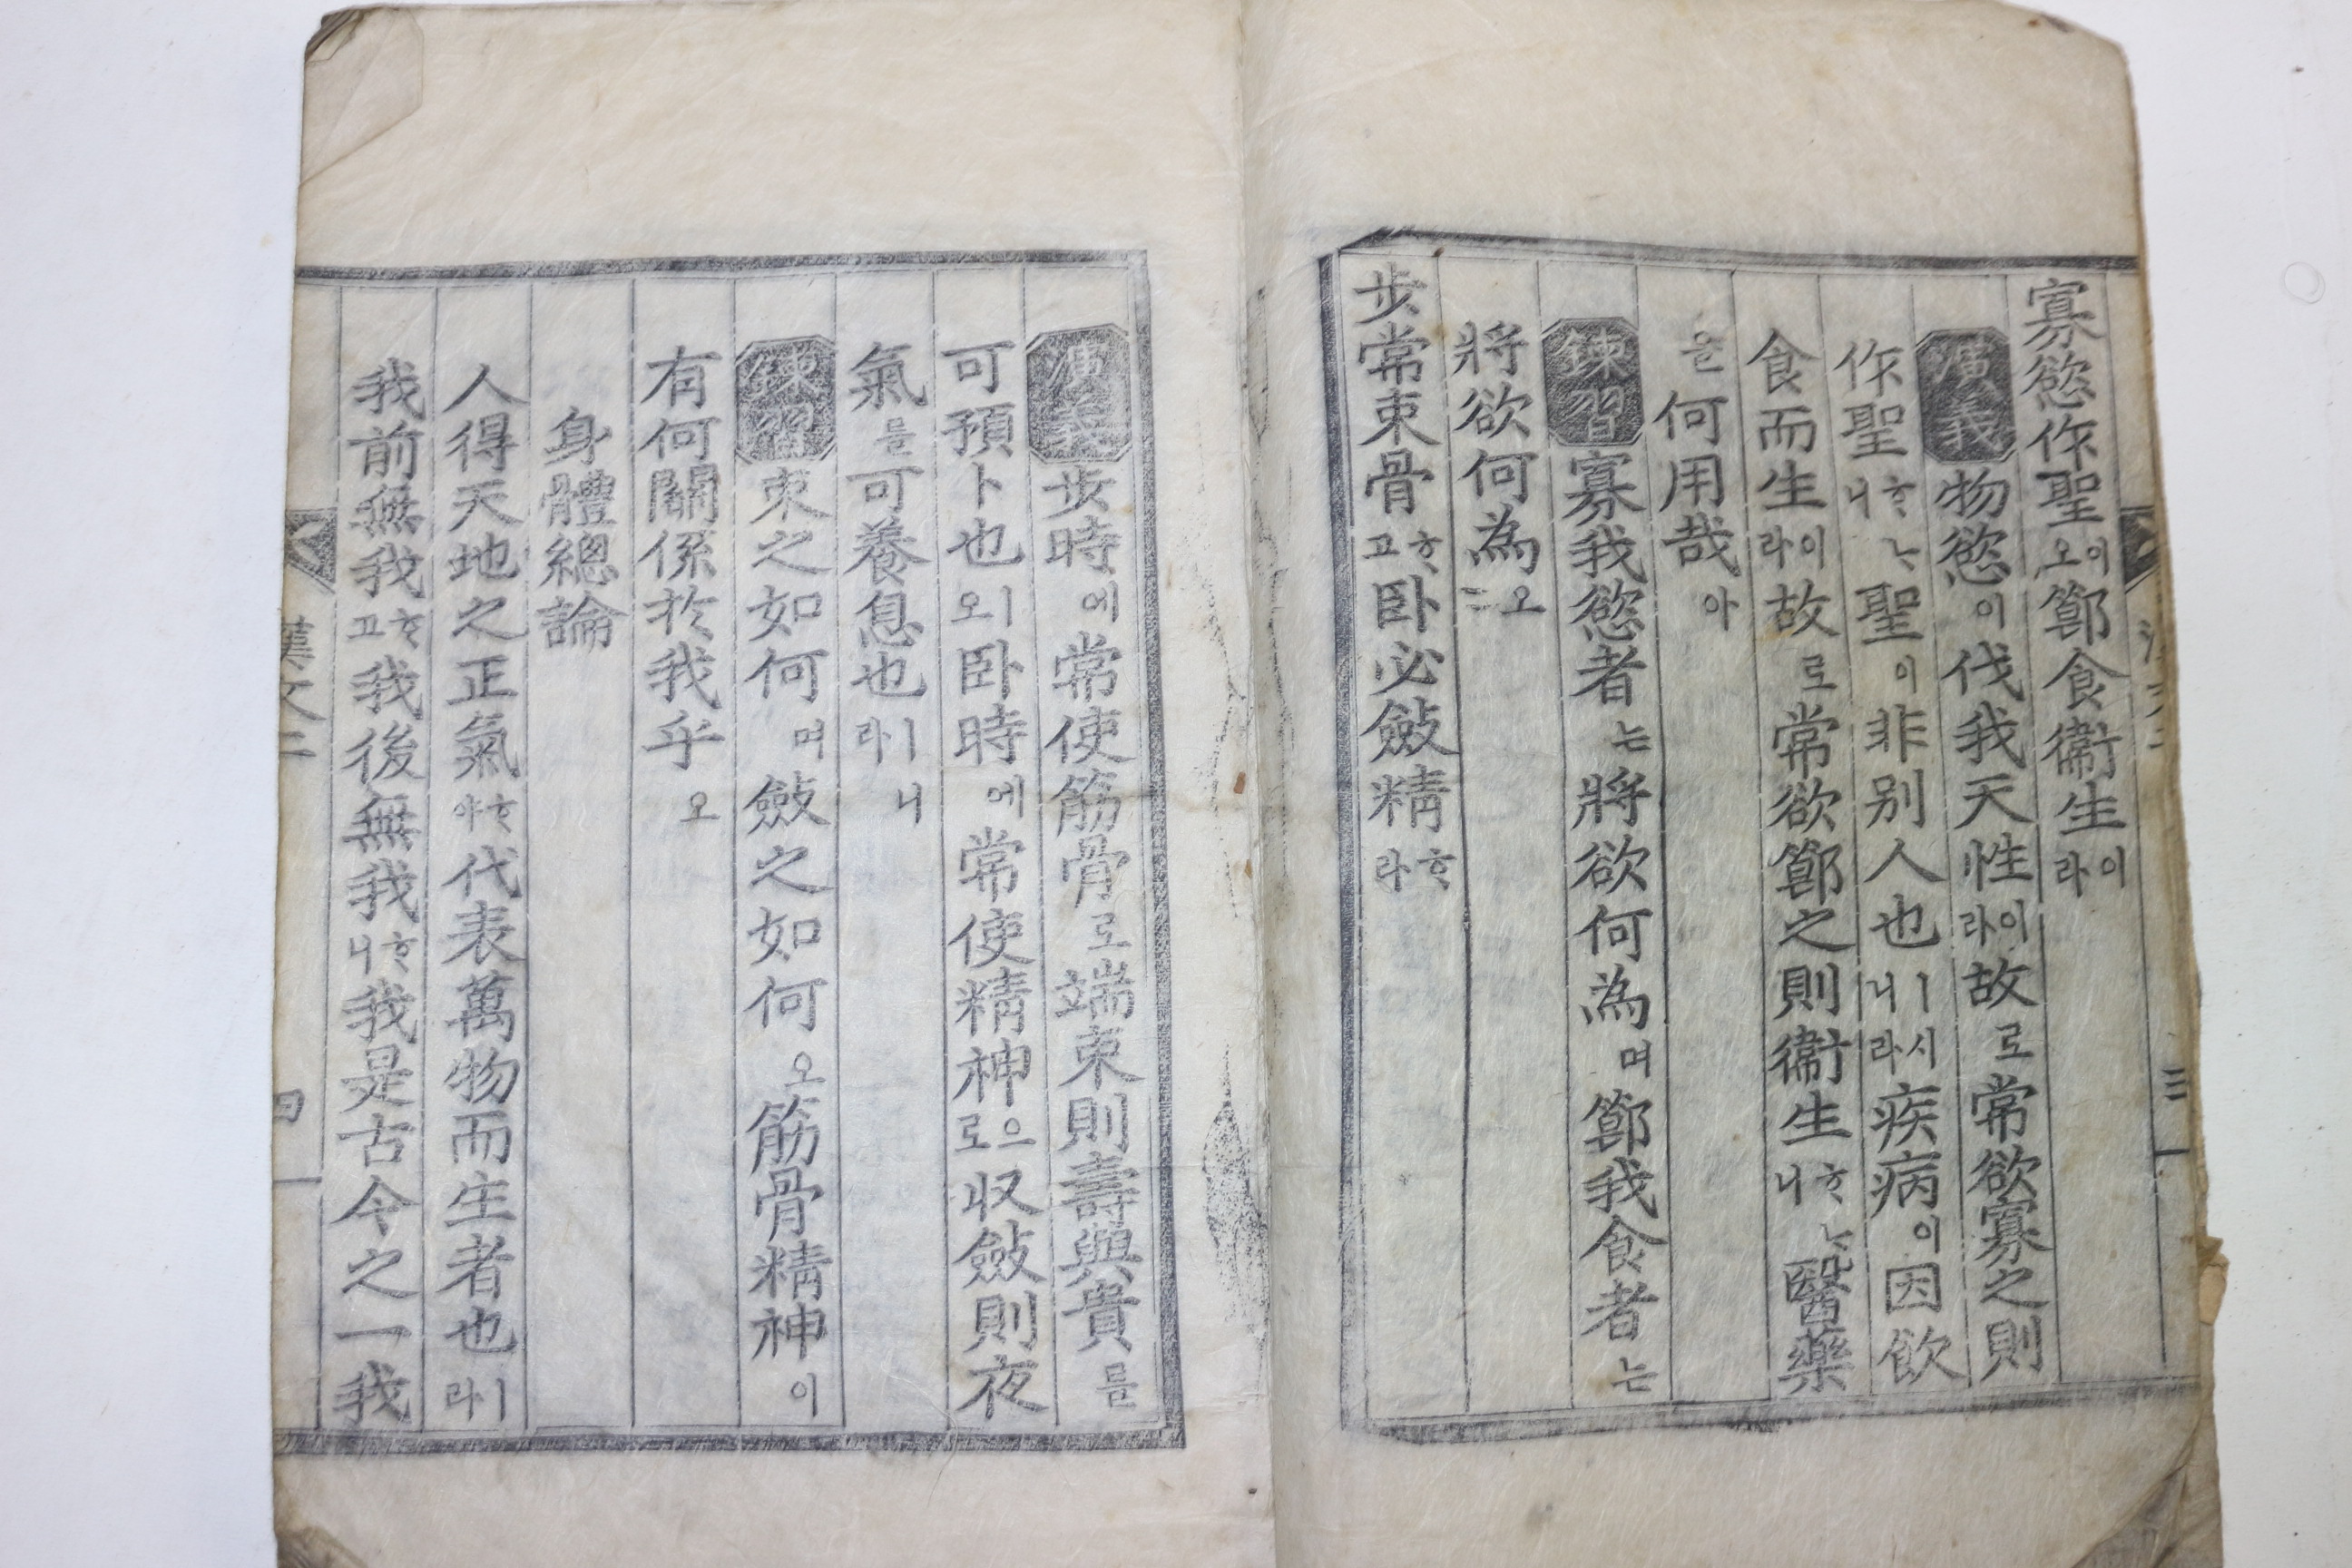 寡慾作聖이오節食衛生이라
演義物慾이伐我天性이라故로常欲寡之則
作聖ᄒᆞ니ᄂᆞ聖이非別人也ㅣ니시라疾病이因飮
食而生이라故로常欲節之則衛生ᄒᆞ니ᄂᆞ醫藥
을何用哉아
鍊習寡我慾者는將欲何為며節我食者는
將欲何為오
步常束骨ᄒᆞ고臥必斂精ᄒᆞ라
演義步時에常使筋骨로端束則壽與貴를
可預卜也ㅣ오臥時에常使精神으로收斂則夜
氣를可養息也ㅣ라니
鍊習束之如何며斂之如何오筋骨精神이
有何關係於我乎오
身體總論
人得天地之正氣ᄒᆞ야代表萬物而生者也ㅣ라
我前無我ᄒᆞ고我後無我ᄒᆞ니我是古今之一我
漢文二
四